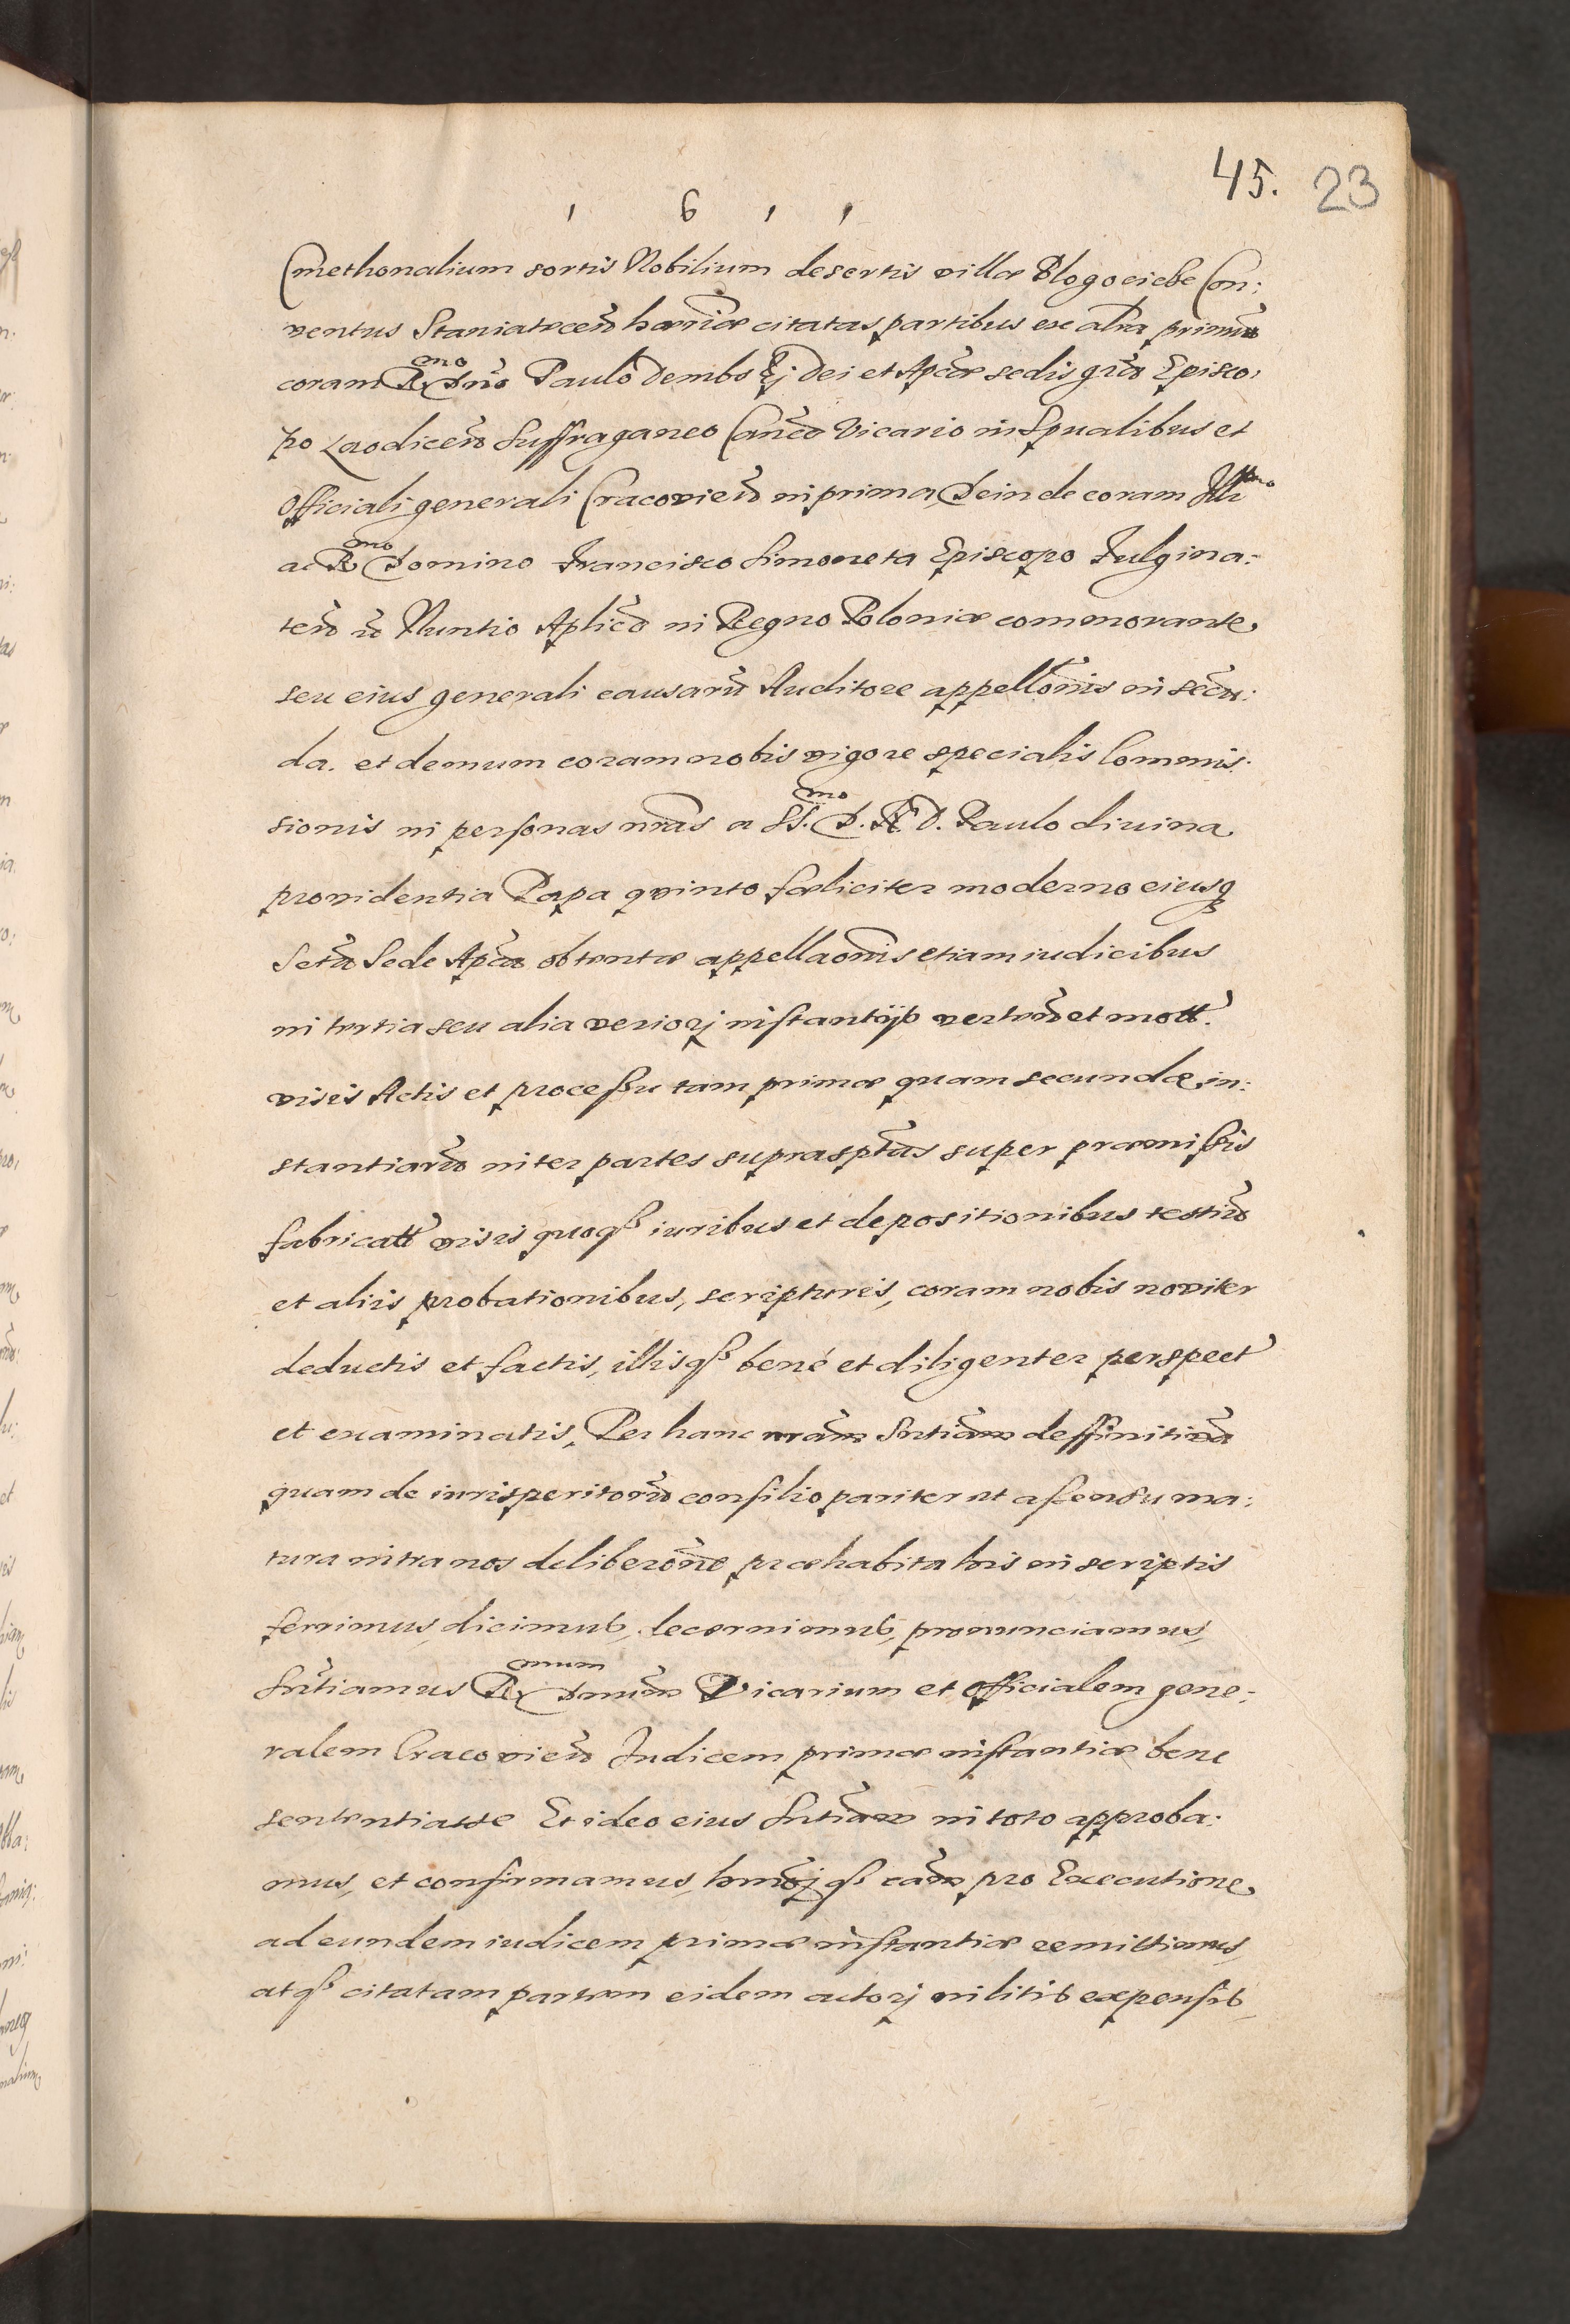 45. 23
1 6 1 1
Cmethonalium sortis Nobilium desertis villæ Blogocicbe Con:
ventus Staniatecen̄ hæred̄iæ citatas partibus ex alr̄a primū
coram R̄mo Dn̄o Paulo Dembskj Dei et Apc̄æ sedis gr̄a Episco,
po Laodicen̄ Suffraganeo Can̄co Vicario in Spualibus et
Officiali generali Cracovien̄ in prima, Dein de coram Illmo
ac R̄mo Domino Francisco Simoneta Episcopo Fulgina:
ten̄ Nuntio Aplic̄o in Regno Poloniæ commorante,
seu eius generali causarū Auditore appellōnis in secū:
da. et demum coram nobis vigore specialis Commis:
sionis in personas nr̄as a SS.mo D. N. D. Paulo divina
providentia Papa qvinto fæliciter moderno eiusq
Sctā Sede Apc̄a obtentæ appellaōnis etiam iudicibus
in tertia seu alia veriorj instantijs verteñ et mott.
visis Actis et processu tam primæ quam secundæ in:
stantiarū inter partes suprasptās super præmissis
fabricatt visis quoq iuribus et depositionibus testiū
et aliis probationibus, scripturis, coram nobis noviter
deductis et factis, illisq bené et diligenter perspect
et examinatis, Per hanc nr̄am Snt̄iam deffinitivā
quam de iurisperitorū consilio pariter et assensu ma:
tura intra nos deliberōne præhabita his in scriptis
ferrimus, dicimus, decernimus, pronunciamus,
Snt̄iamus R̄mum Dnum̄ Vicarium et Officialem gene:
ralem Cracovien̄ Judicem primæ instantiæ bene
sententiasse Et ideo eius Snt̄iam in toto approba:
mus, et confirmamus, hm̄oj q cām pro Executione,
ad eundem iudicem primæ instantiæ remittimus,
atq citatam partem eidem actorj in litis expensis,